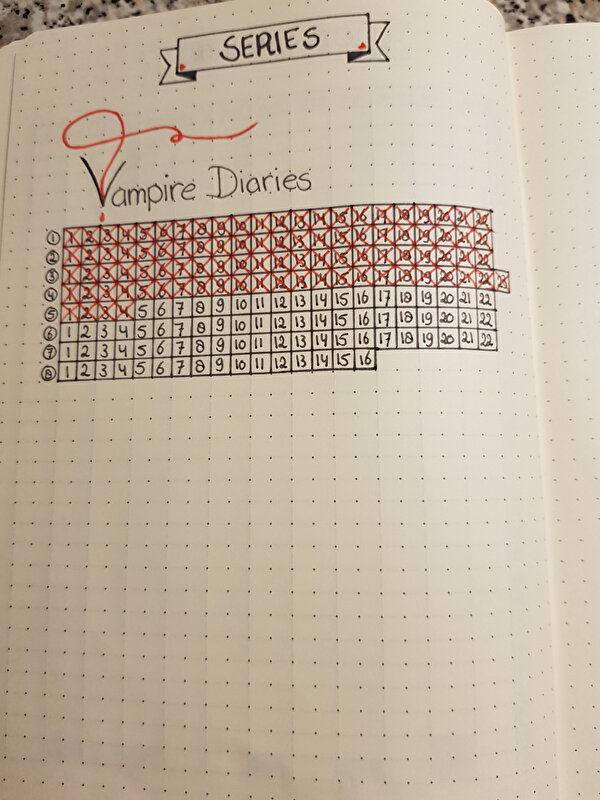 SERIES
Vampire Diaries
① 1 2 3 4 5 6 7 8 9 10 11 12 13 14 15 16 17 18 19 20 21 22
② 1 2 3 4 5 6 7 8 9 10 11 12 13 14 15 16 17 18 19 20 21 22
③ 1 2 3 4 5 6 7 8 9 10 11 12 13 14 15 16 17 18 19 20 21 22
④ 1 2 3 4 5 6 7 8 9 10 11 12 13 14 15 16 17 18 19 20 21 22 23
⑤ 1 2 3 4 5 6 7 8 9 10 11 12 13 14 15 16 17 18 19 20 21 22
⑥ 1 2 3 4 5 6 7 8 9 10 11 12 13 14 15 16 17 18 19 20 21 22
⑦ 1 2 3 4 5 6 7 8 9 10 11 12 13 14 15 16 17 18 19 20 21 22
⑧ 1 2 3 4 5 6 7 8 9 10 11 12 13 14 15 16